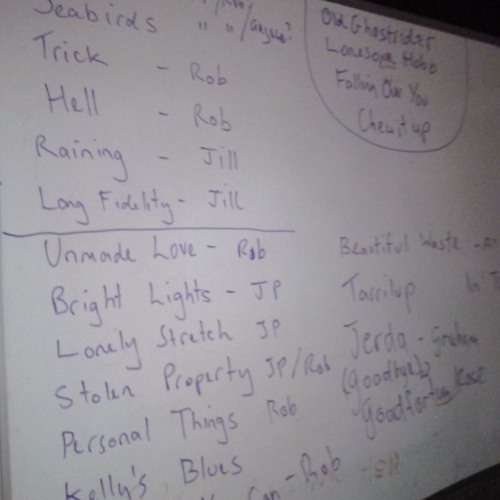 Seabirds " "
Trick - Rob
Hell - Rob
Raining - Jill
Long Fidelity - Jill
Unmade Love - Rob
Bright Lights - JP
Lonely Stretch JP
Stolen Property JP/Rob
Personal Things Rob
Kelly's Blues
Can - Rob
Old Ghostrider
Lonesome Hobo
Falling Over You
Chew it up
Beautiful Waste
Tarrilup In
Jerda - Graham
(Goodbye)
Goodfortune Rose